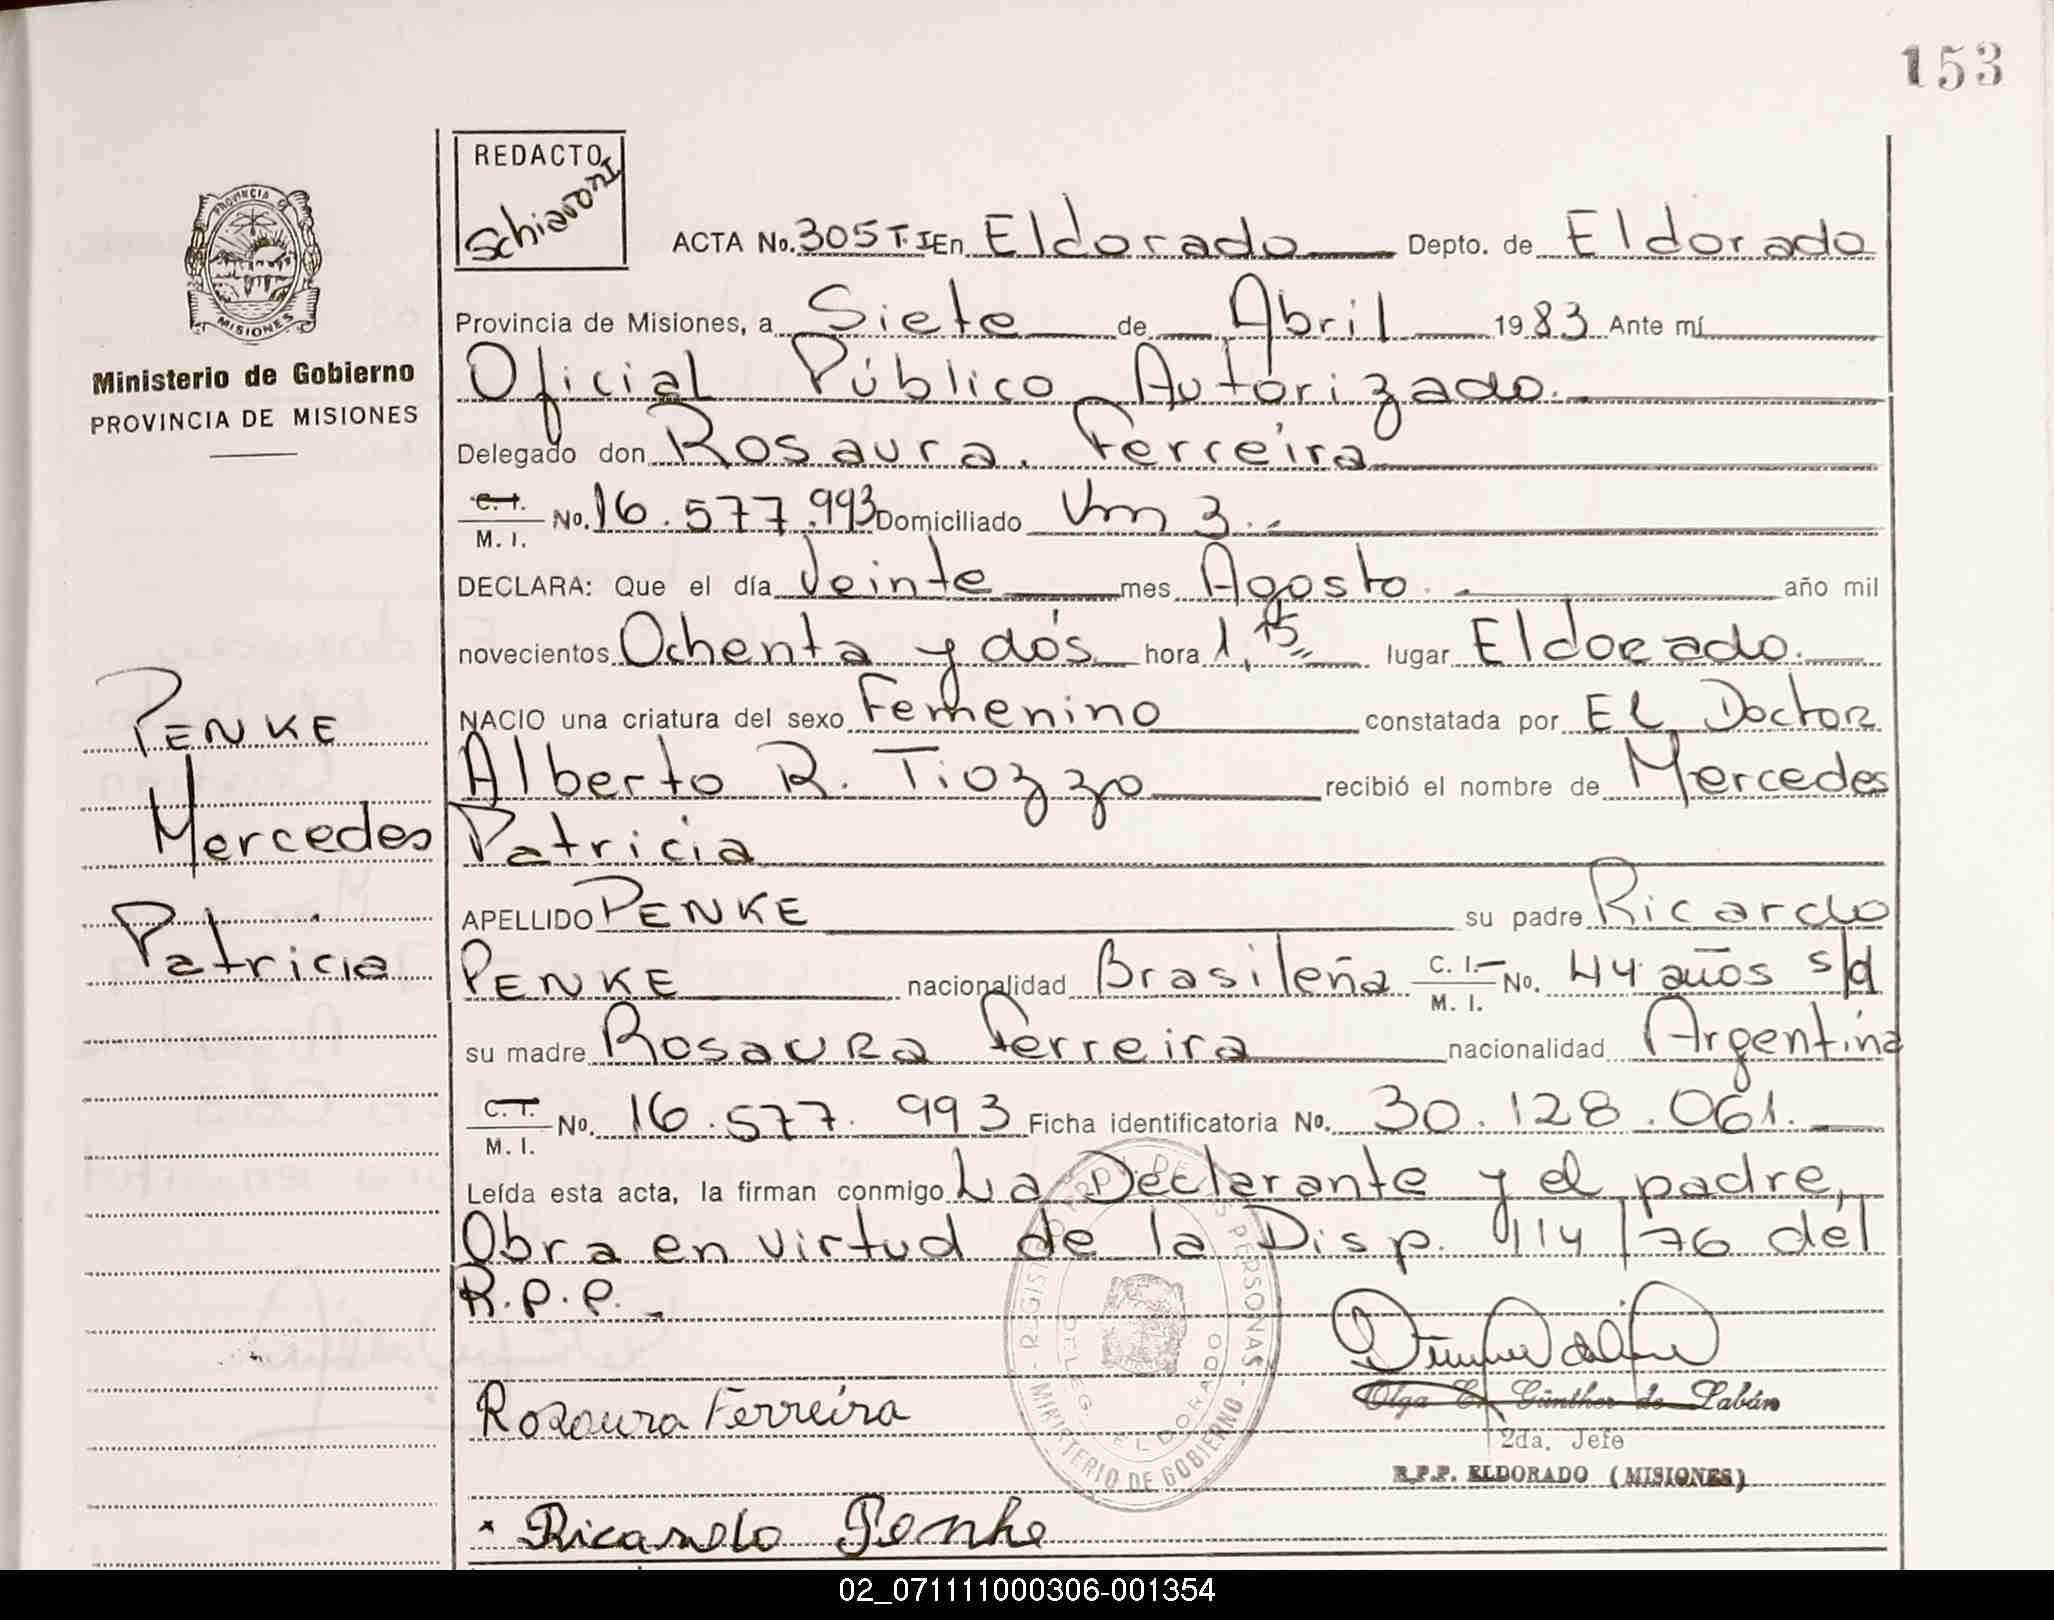 153
REDACTO
Schiavoni
PROVINCIA DE
MISIONES
Ministerio de Gobierno
PROVINCIA DE MISIONES
ACTA No. 305 T. I En Eldorado Depto. de Eldorado
Provincia de Misiones, a Siete de Abril 1983 Ante mí
Oficial Público Autorizado.
Delegado don Rosaura. Ferreira
C. I. M. I. No. 16.577.993 Domiciliado Km 3.
DECLARA: Que el día Veinte mes Agosto. año mil
novecientos Ochenta y dós hora 1,15 lugar Eldorado.
NACIO una criatura del sexo Femenino constatada por El Doctor
Alberto R. Tiozzo recibió el nombre de Mercedes
Patricia
APELLIDO PENKE su padre Ricardo
PENKE nacionalidad Brasileña C. I. M. I. No. 44 años s/d
su madre Rosaura Ferreira nacionalidad Argentina
C. I. M. I. No. 16.577.993 Ficha identificatoria No. 30.128.061.
Leída esta acta, la firman conmigo La Declarante y el padre,
Obra en virtud de la Disp. 114/76 dél
R.P.P.
PENKE
Mercedes
Patricia
REGISTRO PROV. DE LAS PERSONAS
MINISTERIO DE GOBIERNO
DELEG. ELDORADO
Olga E. Günther de Labán
2da. Jefe
R.P.P. ELDORADO (MISIONES)
Rosaura Ferreira
Ricardo Penke
02_071111000306-001354